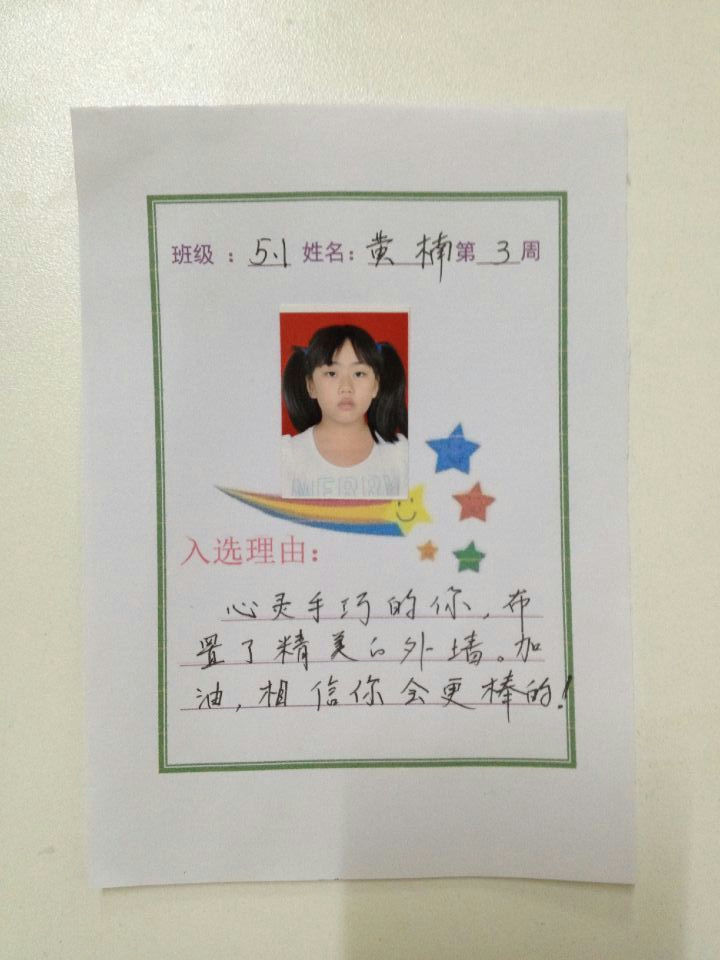 班级：5.1 姓名：黄楠第3周
入选理由：
心灵手巧的你，布
置了精美的外墙。加
油，相信你会更棒的！